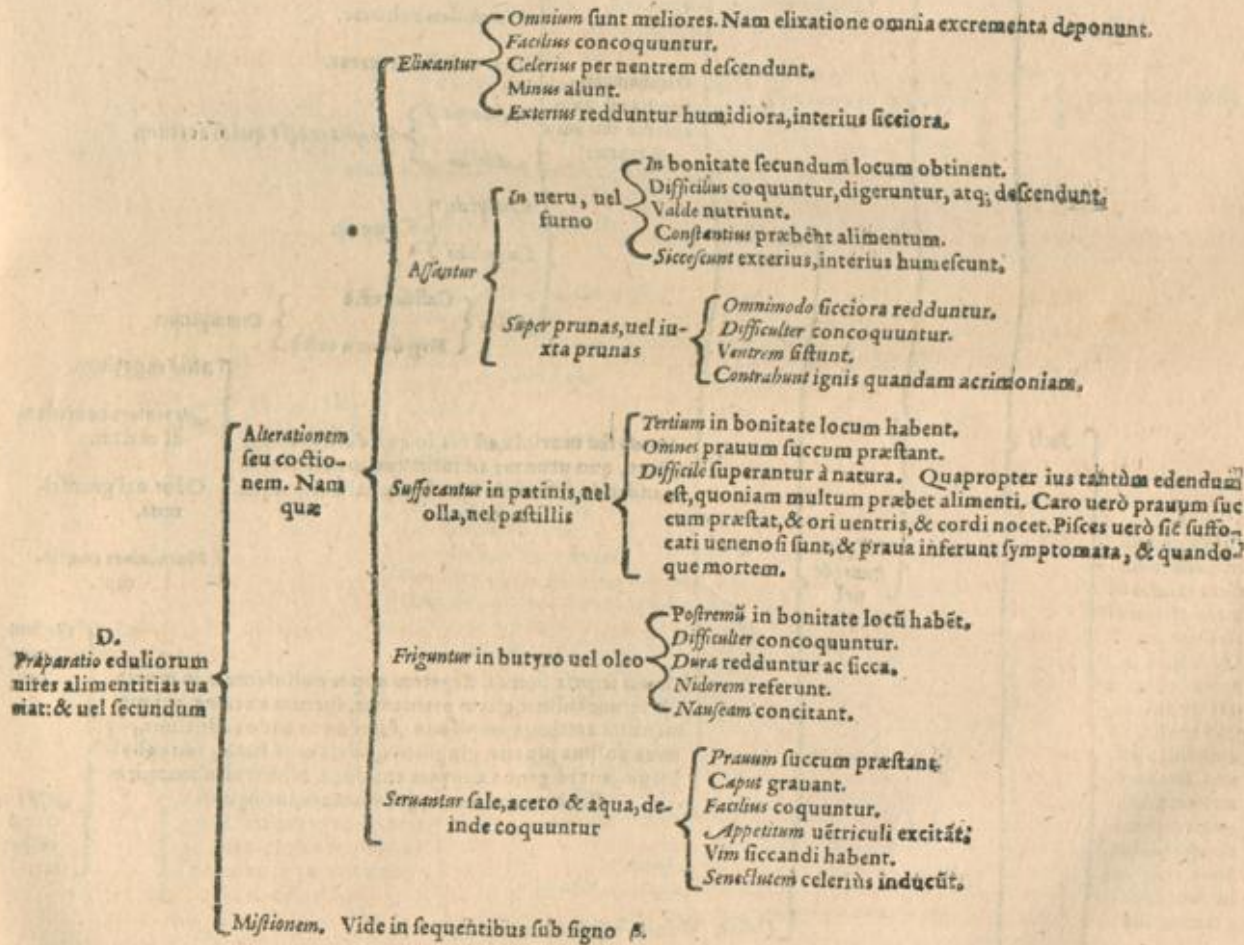 D.
Præparatio eduliorum
uires alimentitias ua
riat: & uel secundum
Alterationem
seu coctio-
nem. Nam
quæ
Elixantur
Omnium sunt meliores. Nam elixatione omnia excrementa deponunt.
Facilius concoquuntur.
Celerius per uentrem descendunt.
Minus alunt.
Exterius redduntur humidiora, interius sicciora.
Assantur
In ueru, uel
furno
In bonitate secundum locum obtinent.
Difficilius coquuntur, digeruntur, atq; descendunt.
Valde nutriunt.
Constantius præbẽnt alimentum.
Siccescunt exterius, interius humescunt.
Super prunas, uel iu-
xta prunas
Omnimodo sicciora redduntur.
Difficulter concoquuntur.
Ventrem sistunt.
Contrahunt ignis quandam acrimoniam.
Suffocantur in patinis, uel
olla, uel pastillis
Tertium in bonitate locum habent.
Omnes prauum succum præstant.
Difficile superantur à natura. Quapropter ius tantùm edendum
est, quoniam multum præbet alimenti. Caro uerò prauum suc
cum præstat, & ori uentris, & cordi nocet. Pisces uerò sic suffo-
cati uenenosi sunt, & praua inferunt symptomata, & quando-
que mortem.
Friguntur in butyro uel oleo
Postremũ in bonitate locũ habẽt.
Difficulter concoquuntur.
Dura redduntur ac sicca.
Nidorem referunt.
Nauseam concitant.
Seruantur sale, aceto & aqua, de-
inde coquuntur
Prauum succum præstant.
Caput grauant.
Facilius coquuntur.
Appetitum uẽtriculi excitãt.
Vim siccandi habent.
Senectutem celeriùs inducũt.
Mistionem. Vide in sequentibus sub signo β.